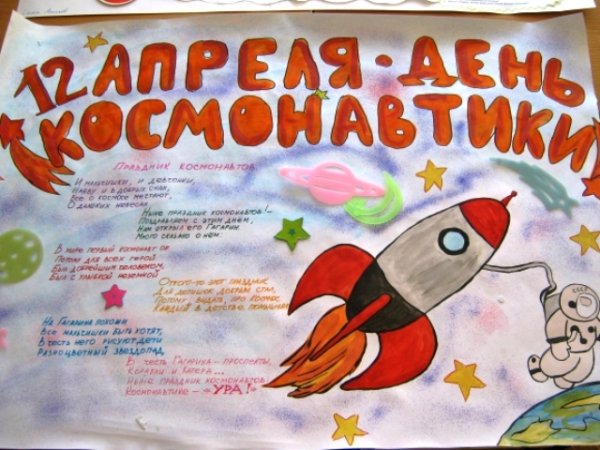 12 АПРЕЛЯ - ДЕНЬ
КОСМОНАВТИКИ
ПРАЗДНИК КОСМОНАВТОВ.
И мальчишки, и девчонки,
Наяву и в добрых снах,
Все о космосе мечтают,
О далёких небесах.
Ныне праздник космонавтов!..
Поздравляем с этим днём,
Нам открыл его Гагарин.
Много сказано о нем.
В мире первый космонавт он
Потому для всех герой
Был добрейшим человеком,
Был с улыбкой неземной
Оттого-то этот праздник
Для детишек добрым стал,
Потому, видать, про космос
Каждый в детстве
На Гагарина похожи
Все мальчишки быть хотят,
В честь него рисуют дети
Разноцветный звездопад,
В честь Гагарина - проспекты,
Корабли и катера...
Ныне праздник космонавтов
Космонавтике - «УРА!»
СССР